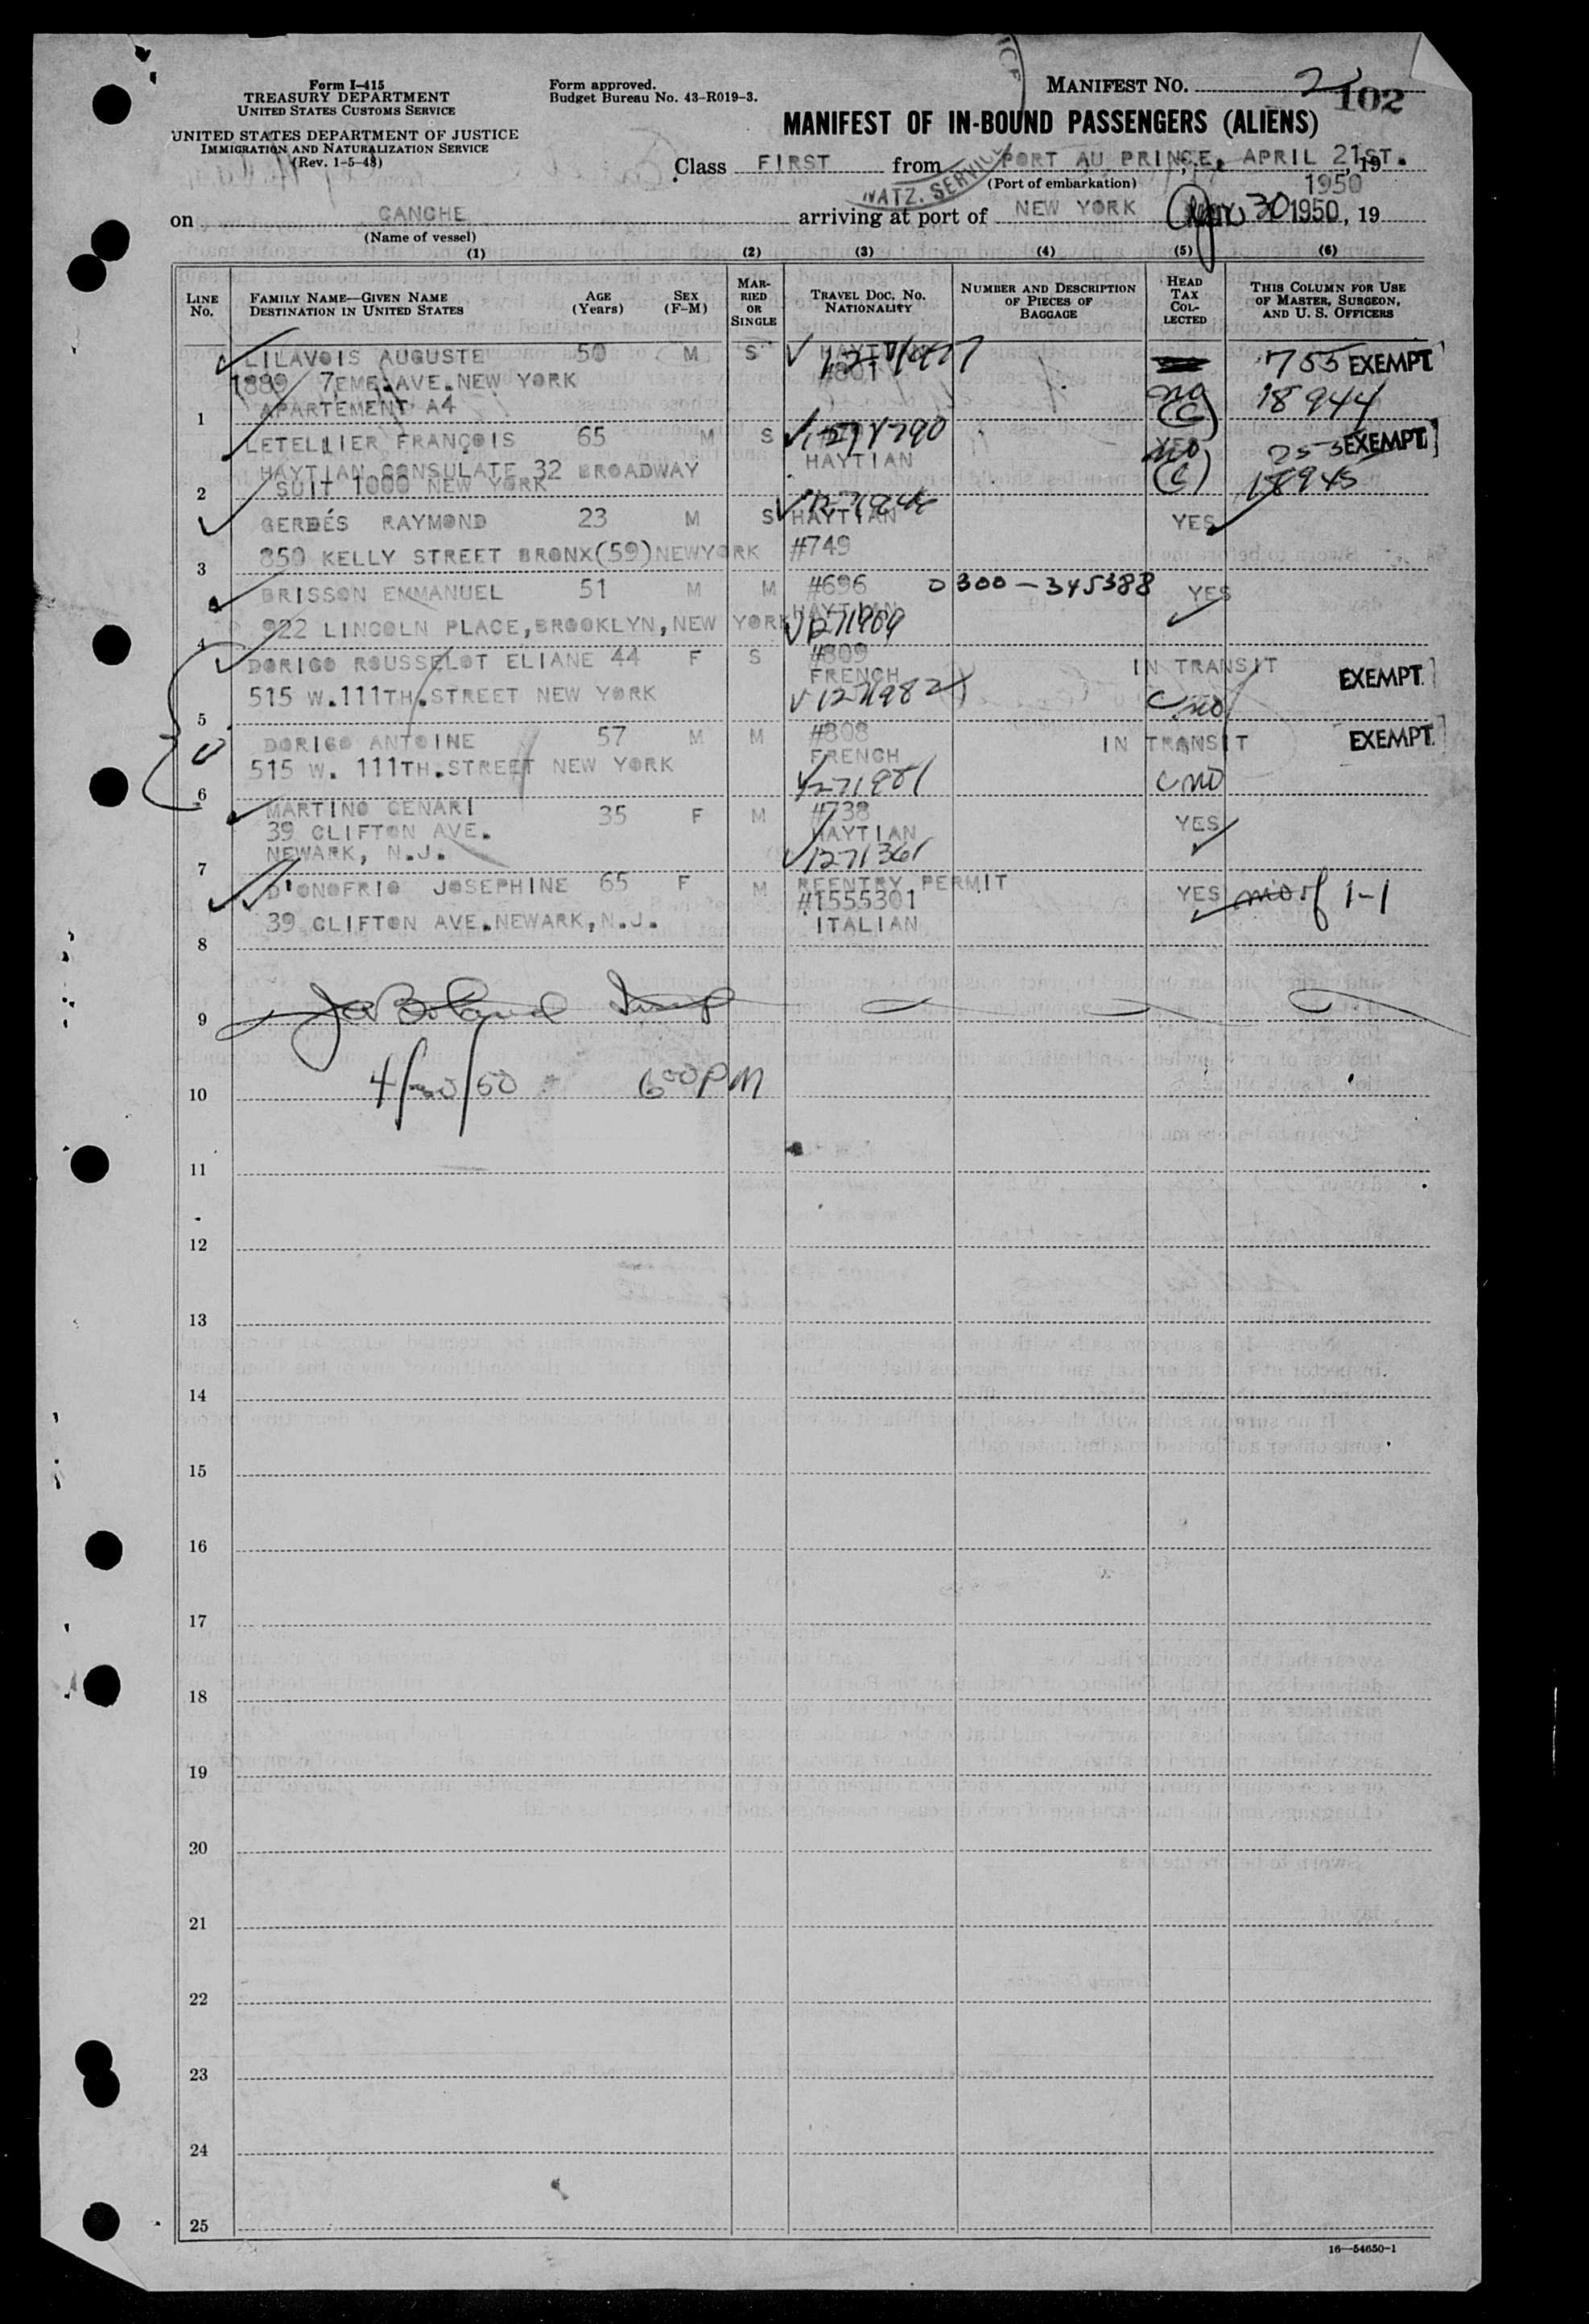 Form I-415
TREASURY DEPARTMENT
UNITED STATES CUSTOMS SERVICE
UNITED STATES DEPARTMENT OF JUSTICE
IMMIGRATION AND NATURALIZATION SERVICE
(Rev. 1-5-48)
Form approved.
Budget Bureau No. 43-R019-3.
MANIFEST NO. 2
102
MANIFEST OF IN-BOUND PASSENGERS (ALIENS)
Class FIRST from PORT AU PRINCE, APRIL 21ST. , 19
(Port of embarkation) 1950
NATZ. SERVICE
on GANCHE arriving at port of NEW YORK 30 1950, 19
(Name of vessel)
(1) (2) (3) (4) (5) (6)
LINE No.
FAMILY NAME—GIVEN NAME
DESTINATION IN UNITED STATES
AGE (Years)
SEX (F-M)
MARRIED OR SINGLE
TRAVEL DOC. NO. NATIONALITY
NUMBER AND DESCRIPTION OF PIECES OF BAGGAGE
HEAD TAX COLLECTED
THIS COLUMN FOR USE OF MASTER, SURGEON, AND U. S. OFFICERS
LILAVOIS AUGUSTE 50 M S HAYTIAN 755 EXEMPT
1889 7EME.AVE.NEW YORK #801 no 18944
1 APARTEMENT A4 (C)
LETELLIER FRANÇOIS 65 M S YES no EXEMPT
HAYTIAN CONSULATE 32 BROADWAY HAYTIAN (C) 18945
2 SUIT 1000 NEW YORK
GERDÉS RAYMOND 23 M S HAYTIAN YES
850 KELLY STREET BRONX(59)NEWYORK #749
3
BRISSON EMMANUEL 51 M M #696 0300-345388 YES
HAYTIAN
922 LINCOLN PLACE,BROOKLYN,NEW YORK 1271909
4
DORIGO ROUSSELOT ELIANE 44 F S #809 IN TRANSIT EXEMPT
FRENCH
515 W.111TH.STREET NEW YORK 1271982 C no
5
DORIGO ANTOINE 57 M M #808 IN TRANSIT EXEMPT
FRENCH
515 W. 111TH.STREET NEW YORK 1271981 C no
6
MARTINO GENARI 35 F M #738 YES
39 CLIFTON AVE. HAYTIAN
NEWARK, N.J. 1271361
7
D'ONOFRIO JOSEPHINE 65 F M REENTRY PERMIT YES 1-1
#1555301
39 CLIFTON AVE.NEWARK,N.J. ITALIAN
8
9
4/30/50 6 00 PM
10
11
12
13
14
15
16
17
18
19
20
21
22
23
24
25
16—54650-1